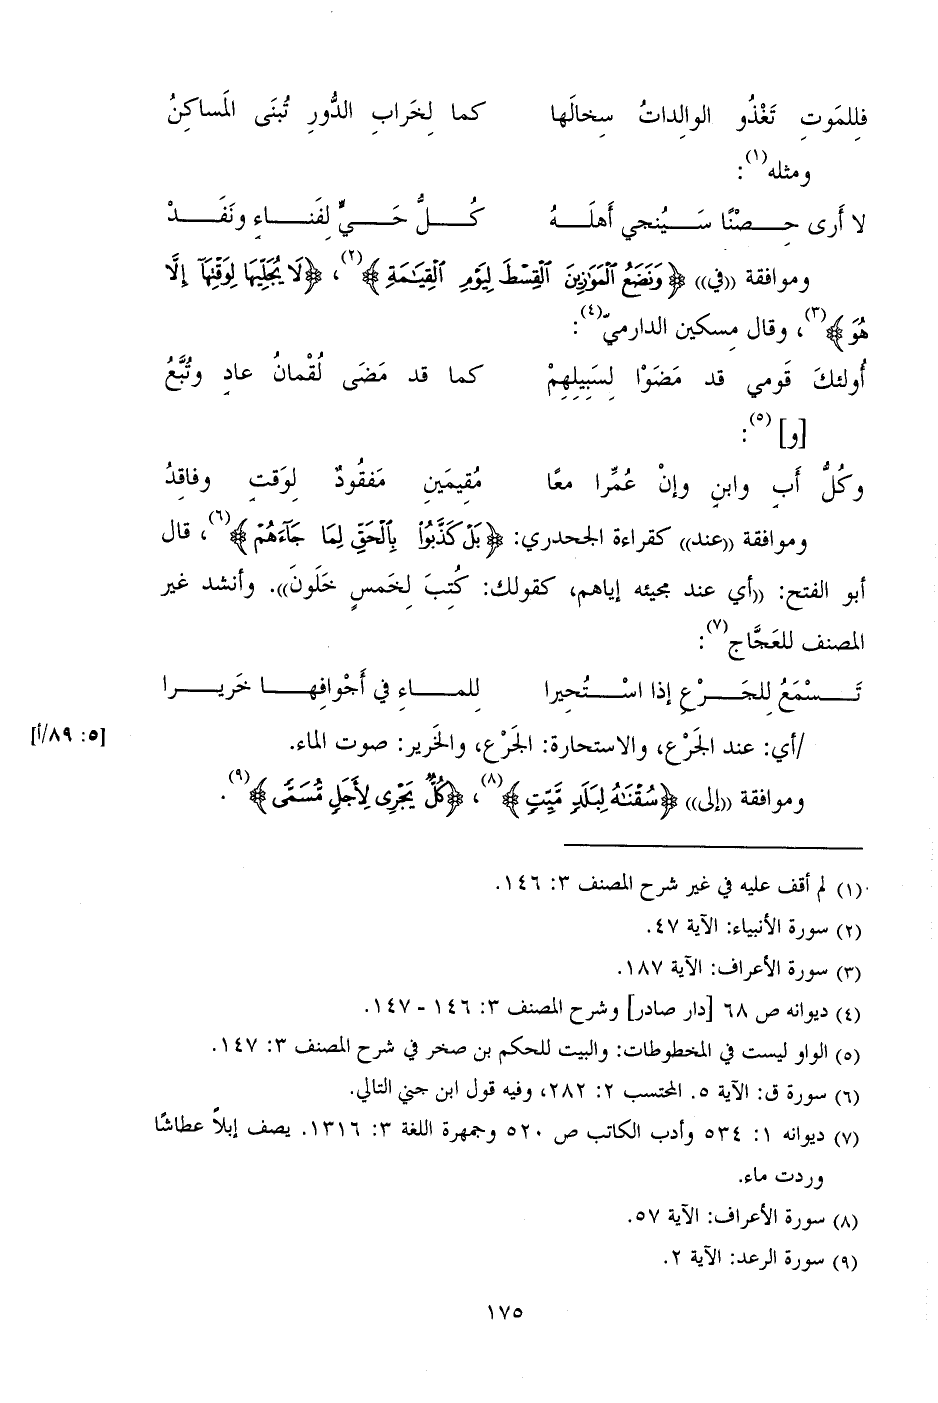 فلِلمَوتِ تَغْذُو الوالِداتُ سِخالَها كما لِخَرابِ الدُّورِ تُبنَى المَساكِنُ
ومثله(١):
لا أَرى حِصْنًا سَيُنجي أَهلَهُ كُلُّ حَيٍّ لِفَناءٍ ونَفَدْ
وموافقة «في» ﴿وَنَضَعُ ٱلْمَوَٰزِينَ ٱلْقِسْطَ لِيَوْمِ ٱلْقِيَٰمَةِ﴾(٢)، ﴿لَا يُجَلِّيهَا لِوَقْتِهَآ إِلَّا
هُوَ﴾(٣)، وقال مِسكين الدارميّ(٤):
أُولئكَ قَومي قد مَضَوْا لِسَبِيلِهِمْ كما قد مَضَى لُقْمانُ عادٍ وتُبَّعُ
[و](٥):
وكُلُّ أَبٍ وابنٍ وإنْ عُمِّرا معًا مُقِيمَينِ مَفقُودٌ لِوَقتٍ وفاقِدُ
وموافقة «عند» كقراءة الجحدري: ﴿بَلْ كَذَّبُوا۟ بِٱلْحَقِّ لِمَا جَآءَهُمْ﴾(٦)، قال
أبو الفتح: «أي عند مجيئه إياهم، كقولك: كُتِبَ لِخَمسٍ خَلَونَ». وأنشد غير
المصنف للعَجَّاج(٧):
تَسْمَعُ لِلجَرْعِ إذا اسْتُحيرا للماءِ في أَجْوافِها خَريرا
/أي: عند الجَرْع، والاستحارة: الجَرْع، والخَرير: صوت الماء. [٥: ٨٩/أ]
وموافقة «إلى» ﴿سُقْنَٰهُ لِبَلَدٍ مَّيِّتٍ﴾(٨)، ﴿كُلٌّ يَجْرِى لِأَجَلٍ مُّسَمًّى﴾(٩).
(١) لم أقف عليه في غير شرح المصنف ٣: ١٤٦.
(٢) سورة الأنبياء: الآية ٤٧.
(٣) سورة الأعراف: الآية ١٨٧.
(٤) ديوانه ص ٦٨ [دار صادر] وشرح المصنف ٣: ١٤٦ - ١٤٧.
(٥) الواو ليست في المخطوطات: والبيت للحكم بن صخر في شرح المصنف ٣: ١٤٧.
(٦) سورة ق: الآية ٥. المحتسب ٢: ٢٨٢، وفيه قول ابن جني التالي.
(٧) ديوانه ١: ٥٣٤ وأدب الكاتب ص ٥٢٠ وجمهرة اللغة ٣: ١٣١٦. يصف إبلاً عطاشًا
وردت ماء.
(٨) سورة الأعراف: الآية ٥٧.
(٩) سورة الرعد: الآية ٢.
١٧٥